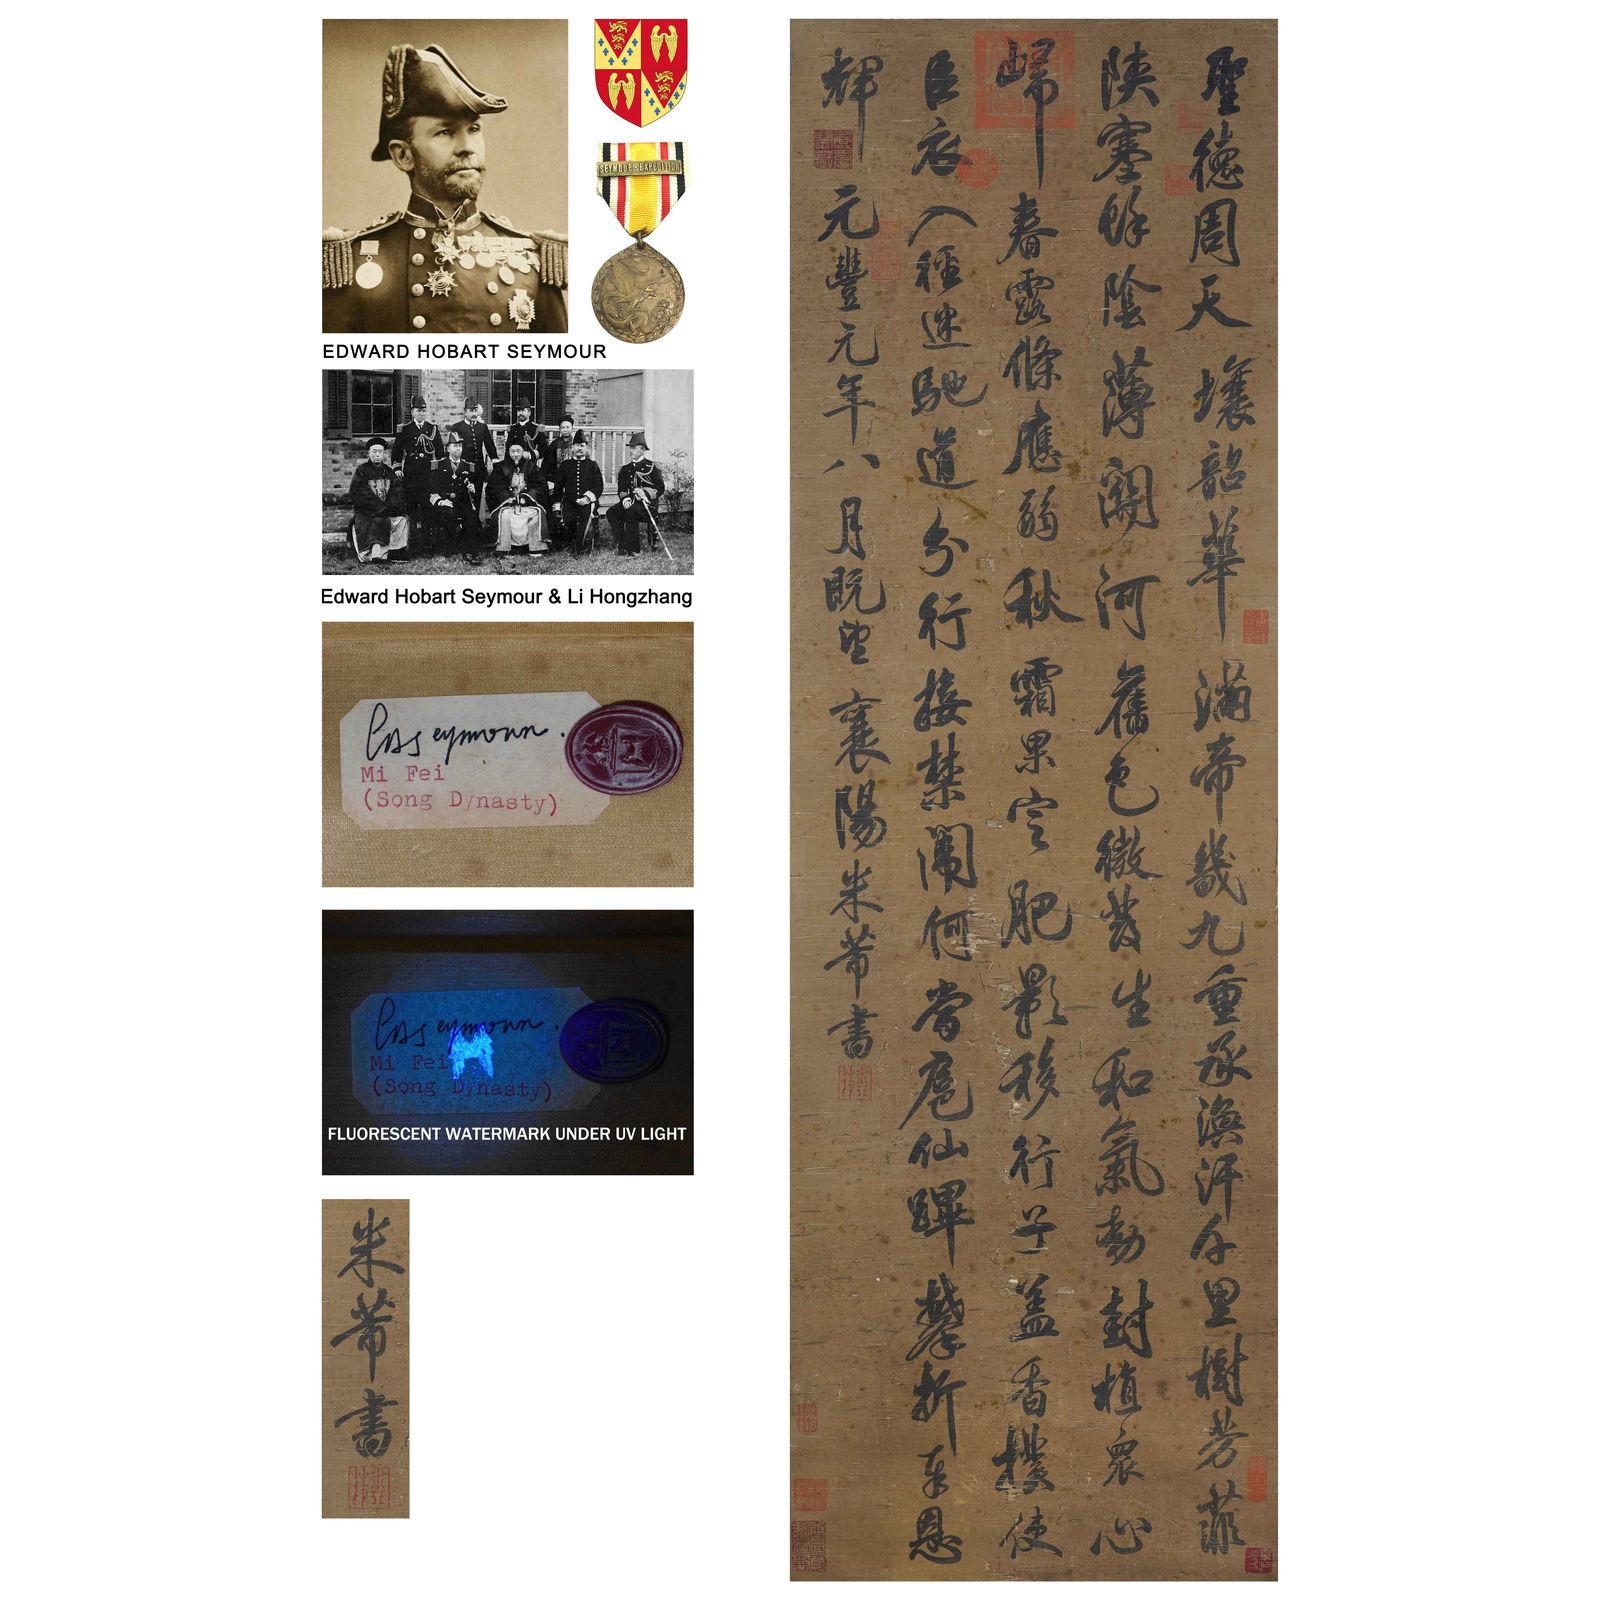 EDWARD HOBART SEYMOUR
Edward Hobart Seymour & Li Hongzhang
Seymour.
Mi Fei
(Song Dynasty)
Seymour.
Mi Fei
(Song Dynasty)
FLUORESCENT WATERMARK UNDER UV LIGHT
米芾書
聖德周天壤韶華滿帝畿九重承渙汗千里樹芳菲
陝塞餘陰薄關河舊色微發生和氣動封植眾心
歸春露條應弱秋霜果定肥影移行子蓋香撲使
臣衣入徑迷馳道分行接禁闈何當扈仙蹕攀折奉恩
輝元豐元年八月既望襄陽米芾書